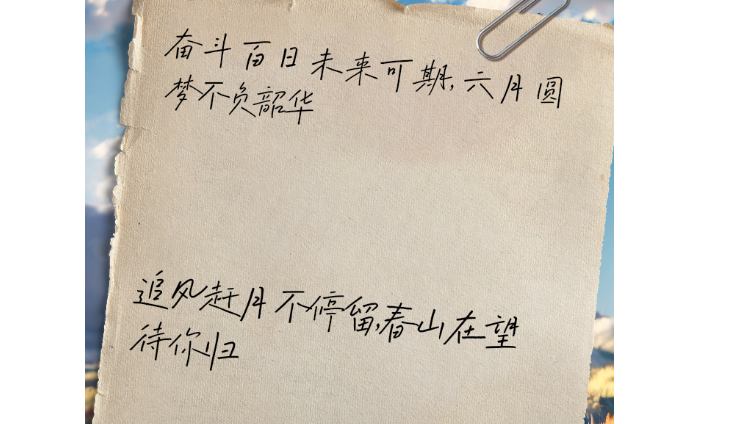 奋斗百日未来可期,六月圆
梦不负韶华
追风赶月不停留,春山在望
待你归